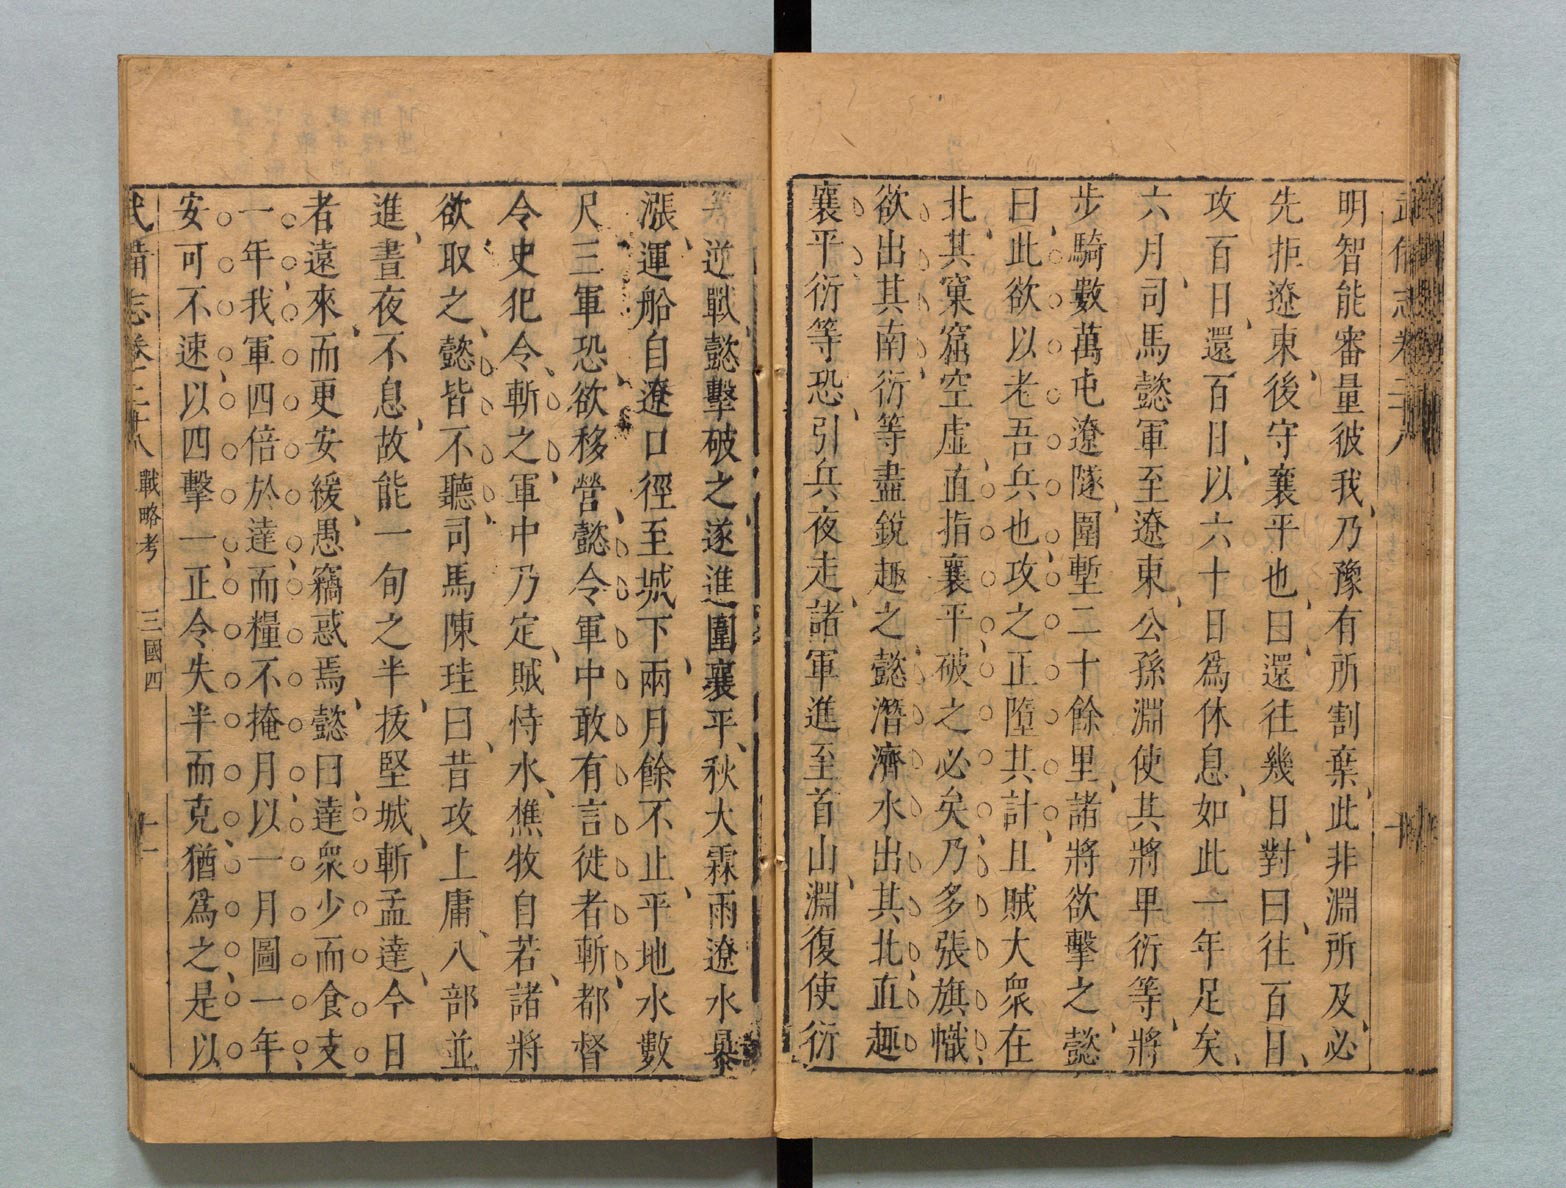 武備志卷二十八
十
明智能審量彼我乃豫有所割棄此非淵所及必
先拒遼東後守襄平也曰還往幾日對曰往百日
攻百日還百日以六十日爲休息如此一年足矣
六月司馬懿軍至遼東公孫淵使其將卑衍等將
步騎數萬屯遼隧圍塹二十餘里諸將欲擊之懿
曰此欲以老吾兵也攻之正墮其計且賊大衆在
北其窠窟空虛直指襄平破之必矣乃多張旗幟
欲出其南衍等盡銳趣之懿潛濟水出其北直趣
襄平衍等恐引兵夜走諸軍進至首山淵復使衍
等逆戰懿擊破之遂進圍襄平秋大霖雨遼水暴
漲運船自遼口徑至城下兩月餘不止平地水數
尺三軍恐欲移營懿令軍中敢有言徙者斬都督
令史犯令斬之軍中乃定賊恃水樵牧自若諸將
欲取之懿皆不聽司馬陳珪曰昔攻上庸八部並
進晝夜不息故能一旬之半拔堅城斬孟達今日
者遠來而更安緩愚竊惑焉懿曰達衆少而食支
一年我軍四倍於達而糧不掩月以一月圖一年
安可不速以四擊一正令失半而克猶爲之是以
武備志卷二十八 戰略考 三國四
十一